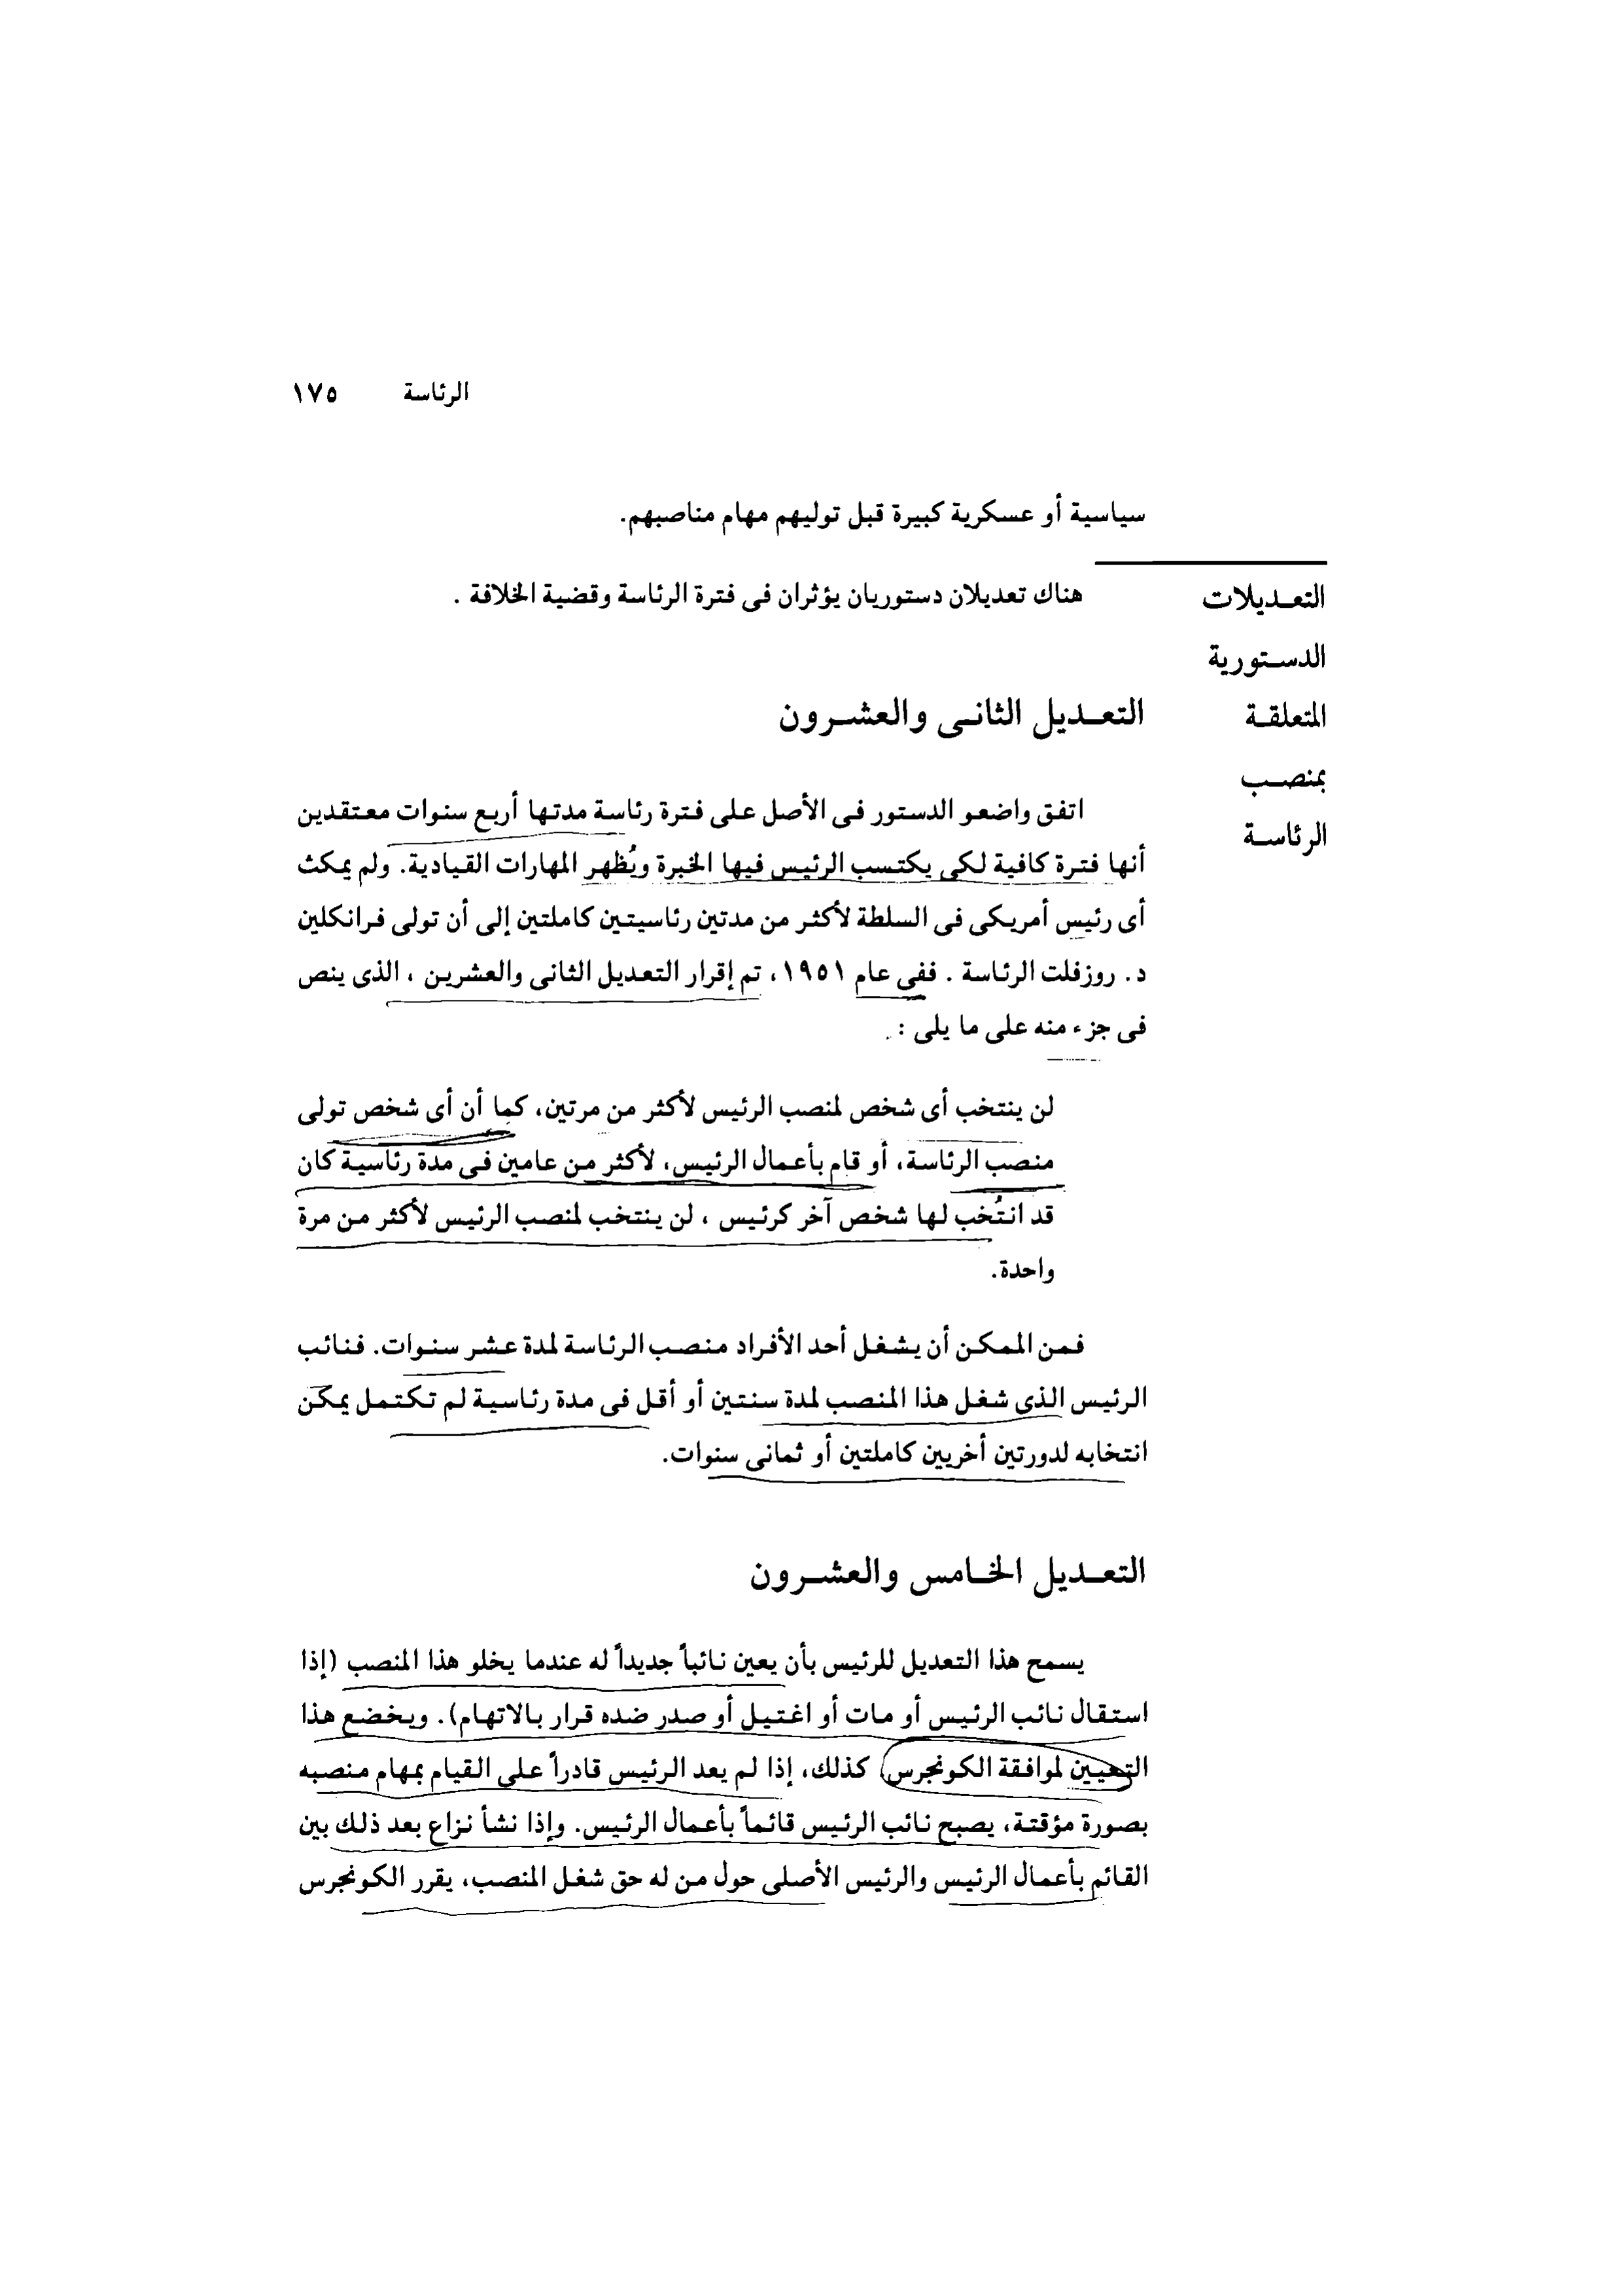 الرئاسة ١٧٥
سياسية أو عسكرية كبيرة قبل توليهم مهام مناصبهم.
التعديلات
الدستورية
المتعلقة
بمنصب
الرئاسة
هناك تعديلان دستوريان يؤثران فى فترة الرئاسة وقضية الخلافة .
التعديل الثانى والعشرون
اتفق واضعو الدستور فى الأصل على فترة رئاسة مدتها أربع سنوات معتقدين
أنها فترة كافية لكى يكتسب الرئيس فيها الخبرة ويُظهر المهارات القيادية. ولم يمكث
أى رئيس أمريكى فى السلطة لأكثر من مدتين رئاسيتين كاملتين إلى أن تولى فرانكلين
د. روزفلت الرئاسة . ففى عام ١٩٥١، تم إقرار التعديل الثانى والعشرين ، الذى ينص
فى جزء منه على ما يلى :
لن ينتخب أى شخص لمنصب الرئيس لأكثر من مرتين، كما أن أى شخص تولى
منصب الرئاسة، أو قام بأعمال الرئيس، لأكثر من عامين فى مدة رئاسية كان
قد انتُخب لها شخص آخر كرئيس ، لن ينتخب لمنصب الرئيس لأكثر من مرة
واحدة.
فمن الممكن أن يشغل أحد الأفراد منصب الرئاسة لمدة عشر سنوات. فنائب
الرئيس الذى شغل هذا المنصب لمدة سنتين أو أقل فى مدة رئاسية لم تكتمل يمكن
انتخابه لدورتين أخريين كاملتين أو ثمانى سنوات.
التعديل الخامس والعشرون
يسمح هذا التعديل للرئيس بأن يعين نائباً جديداً له عندما يخلو هذا المنصب (إذا
استقال نائب الرئيس أو مات أو اغتيل أو صدر ضده قرار بالاتهام). ويخضع هذا
التعيين لموافقة الكونجرس كذلك، إذا لم يعد الرئيس قادراً على القيام بمهام منصبه
بصورة مؤقتة، يصبح نائب الرئيس قائماً بأعمال الرئيس. وإذا نشأ نزاع بعد ذلك بين
القائم بأعمال الرئيس والرئيس الأصلى حول من له حق شغل المنصب، يقرر الكونجرس